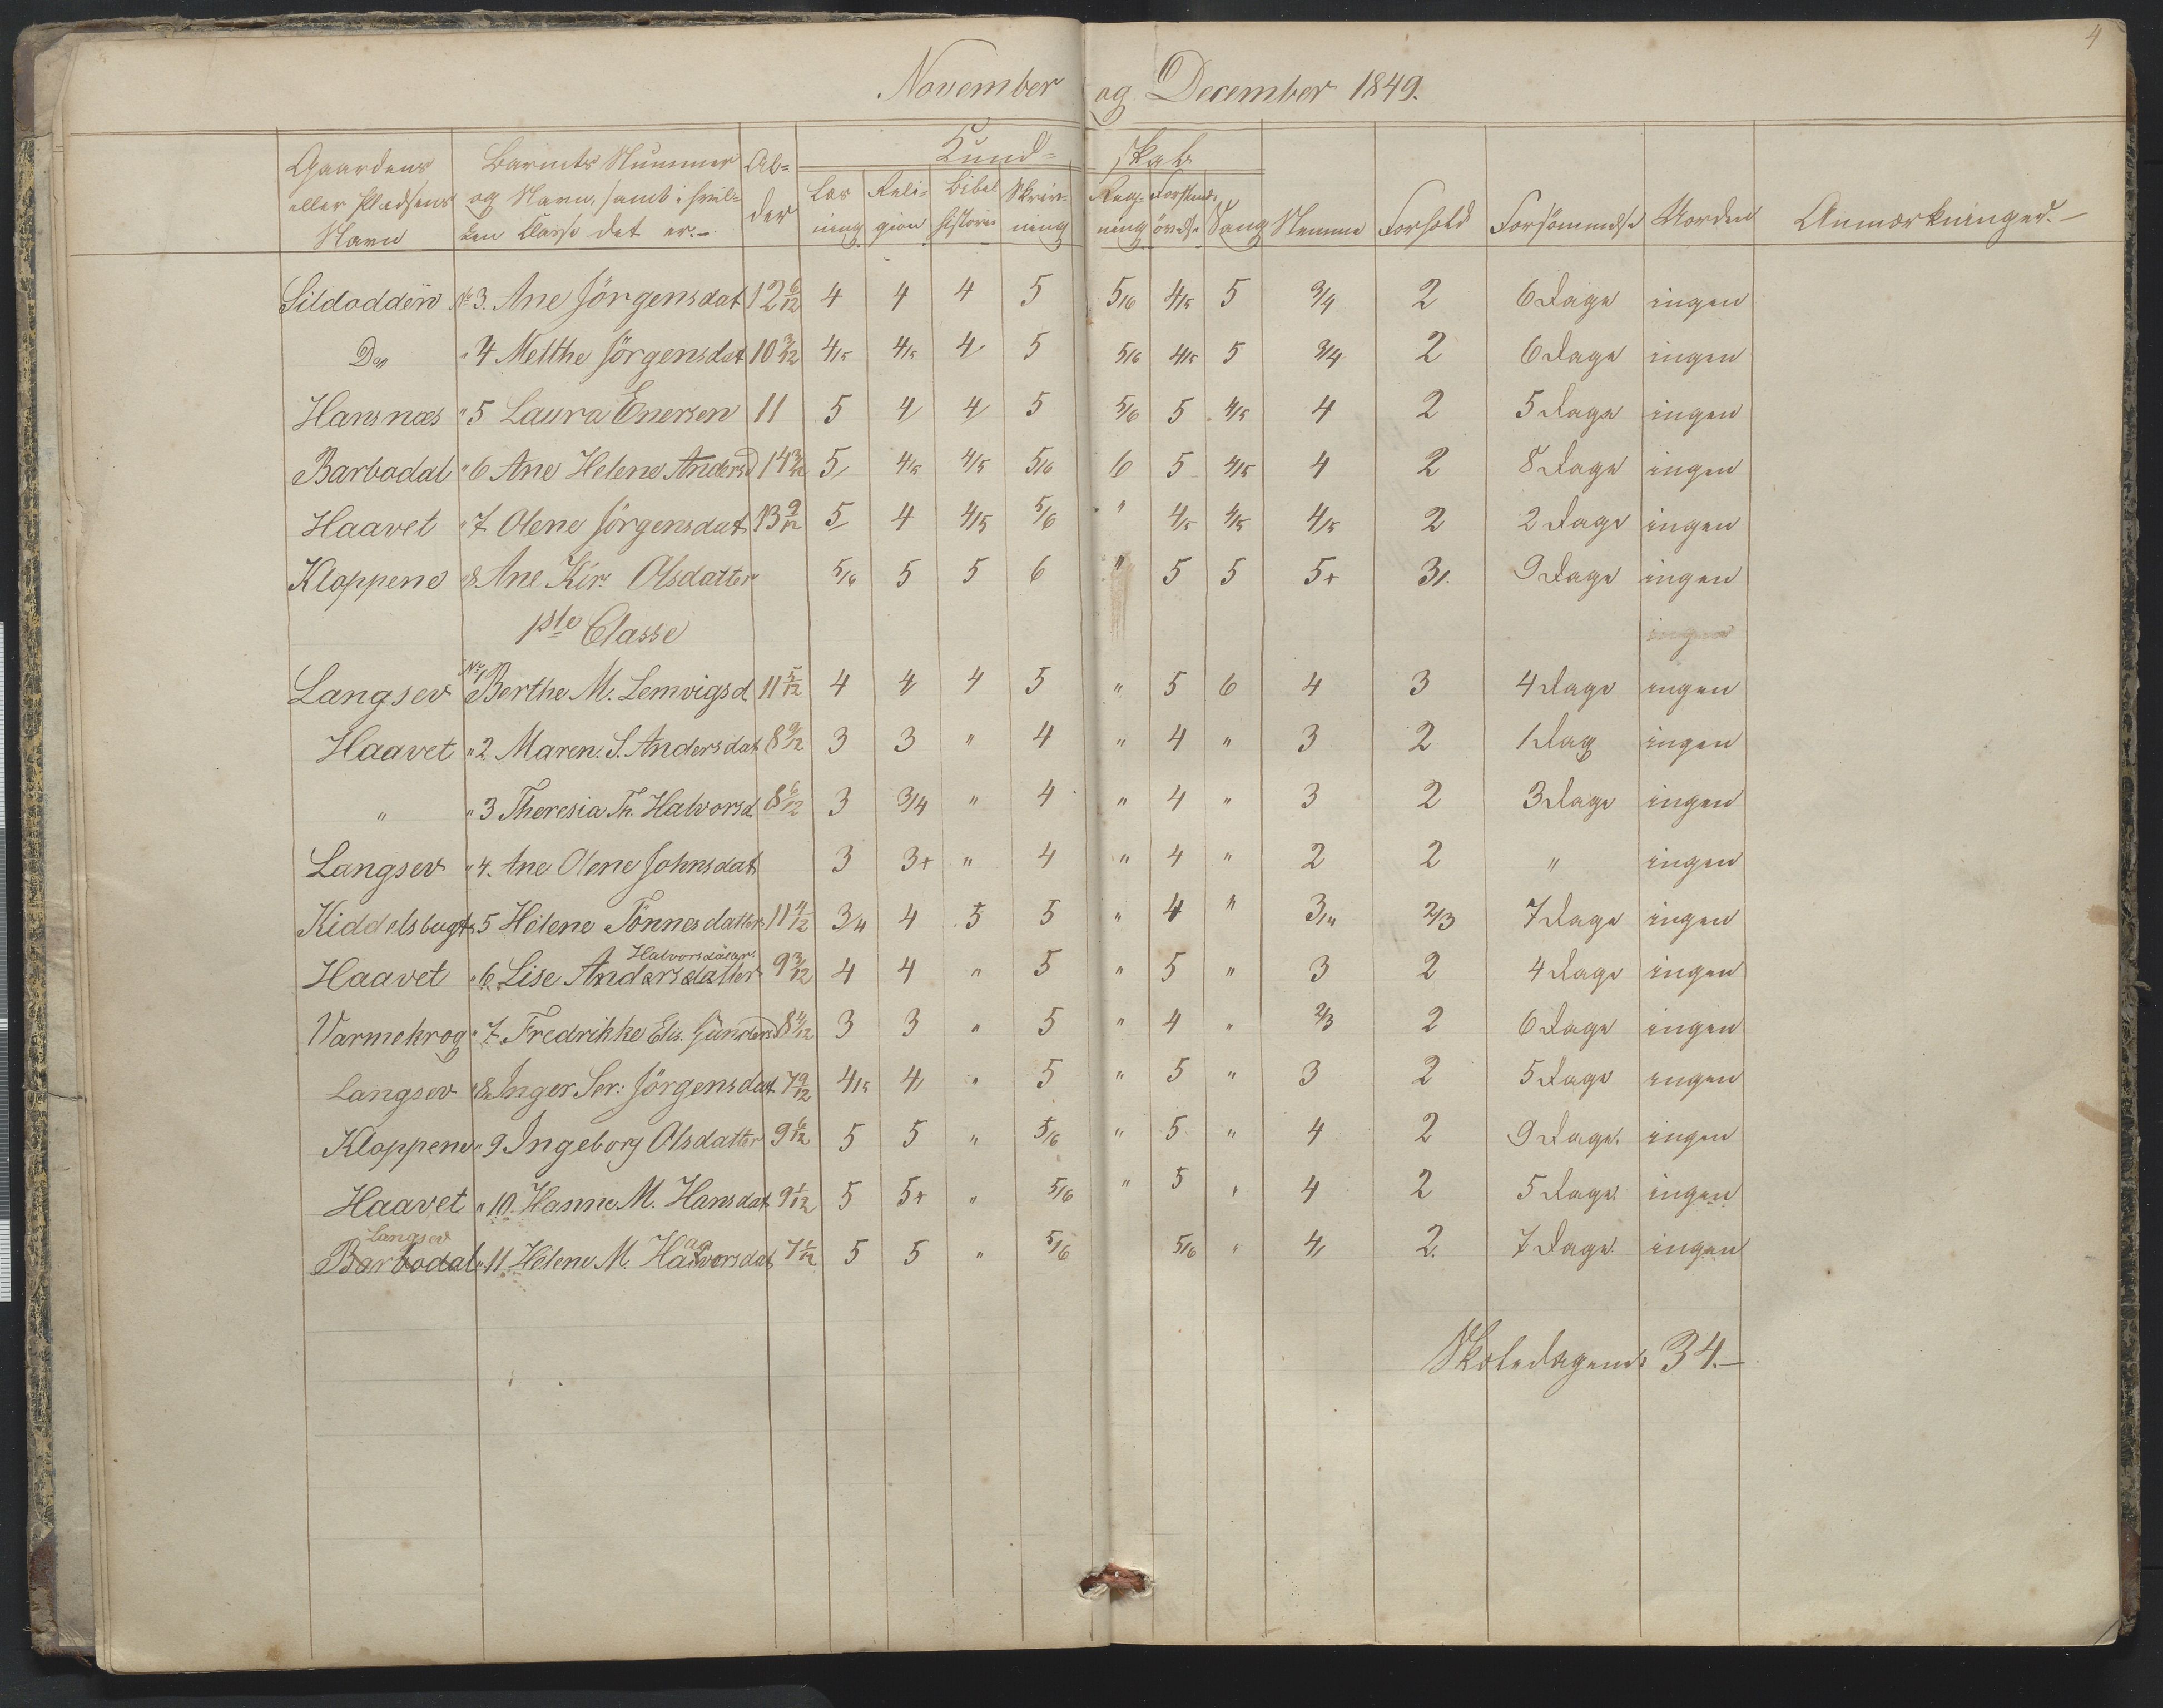 4
November og December 1849.
Gaardens eller Pladsens Navn | Barnets Nummer og Navn, samt i hvilken Classe det er.- | Alder | Kundskab: Læsning | Religion | Bibelhistorie | Skrivning | Regning | Forstandsøvelse | Sang | Nemme | Forhold | Forsömmelse | Uorden | Anmærkninger.-
Sildodden | No 3. Ane Jörgensdat | 12 6/12 | 4 | 4 | 4 | 5 | 5/6 | 4/5 | 5 | 3/4 | 2 | 6 Dage | ingen
Do | " 4 Metthe Jörgensdat | 10 3/12 | 4/5 | 4/5 | 4 | 5 | 5/6 | 4/5 | 5 | 3/4 | 2 | 6 Dage | ingen
Hansnæs | " 5 Laura Enersen | 11 | 5 | 4 | 4 | 5 | 5/6 | 5 | 4/5 | 4 | 2 | 5 Dage | ingen
Barbodal | " 6 Ane Helene Andersd | 14 3/12 | 5 | 4/5 | 4/5 | 5/6 | 6 | 5 | 4/5 | 4 | 2 | 8 Dage | ingen
Haavet | " 7 Olene Jörgensdat | 13 9/12 | 5 | 4 | 4/5 | 5/6 | " | 4/5 | 4/5 | 4/5 | 2 | 2 Dage | ingen
Kloppene | 8 Ane Kir. Olsdatter | 5/6 | 5 | 5 | 6 | " | 5 | 5 | 5+ | 3/. | 9 Dage | ingen
1ste Classe | ingen
Langsev | No 1 Berthe M. Lemvigsd. | 11 5/12 | 4 | 4 | 4 | 5 | " | 5 | 6 | 4 | 3 | 4 Dage | ingen
Haavet | " 2 Maren. S. Andersdat | 8 9/12 | 3 | 3 | " | 4 | " | 4 | " | 3 | 2 | 1 Dag | ingen
" | " 3 Theresia Th. Halvorsd. | 8 6/12 | 3 | 3/4 | " | 4 | " | 4 | " | 3 | 2 | 3 Dage | ingen
Langsev | " 4. Ane Olene Johnsdat | 3 | 3+ | " | 4 | " | 4 | " | 2 | 2 | " | ingen
Kiddelsbugt | " 5 Helene Tönnesdatter | 11 4/12 | 3/4 | 4 | 5 | 5 | " | 4 | " | 3/4 | 2/3 | 7 Dage | ingen
Halvorsdatar.
Haavet | " 6 Lise Andersdatter | 9 3/12 | 4 | 4 | " | 5 | " | 5 | " | 3 | 2 | 4 Dage | ingen
Varmekrog | " 7 Fredrikke Elis. Gundersd | 8 4/12 | 3 | 3 | " | 5 | " | 4 | " | 2/3 | 2 | 6 Dage | ingen
Langsev | 8 Inger Ser: Jörgensdat | 7 9/12 | 4/5 | 4 | " | 5 | " | 5 | " | 3 | 2 | 5 Dage | ingen
Kloppene | " 9 Ingeborg Olsdatter | 9 6/12 | 5 | 5 | " | 5/6 | " | 5 | " | 4 | 2 | 9 Dage. | ingen
Haavet | " 10. Hanne M. Hansdat | 9 1/12 | 5 | 5+ | " | 5/6 | " | 5 | " | 4 | 2 | 5 Dage. | ingen
Langsev
Barbodal | " 11 Helene M. Halvorsdat | 7 1/12 | 5 | 5 | " | 5/6 | 5/6 | " | 4 | 2. | 7 Dage. | ingen
Skoledagene: 34.-